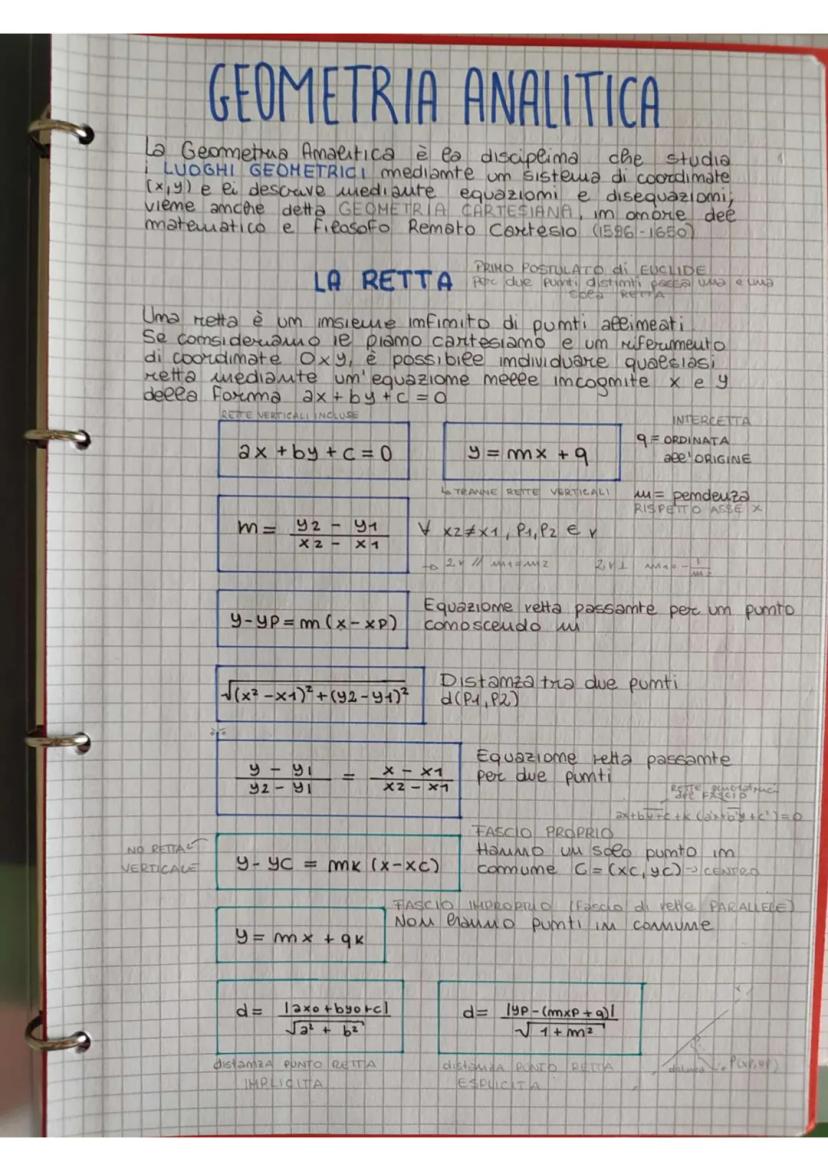 GEOMETRIA ANALITICA
La Geometria Analitica è la disciplina che studia
i LUOGHI GEOMETRICI mediante un sistema di coordinate
(x,y) e li descrive mediante equazioni e disequazioni;
viene anche detta GEOMETRIA CARTESIANA, in onore del
matematico e filosofo Renato Cartesio (1596-1650)
LA RETTA
PRIMO POSTULATO di EUCLIDE
Per due punti distinti passa una e una
sola RETTA
Una retta è un insieme infinito di punti allineati
Se consideriamo il piano cartesiano e un riferimento
di coordinate Oxy, è possibile individuare qualsiasi
retta mediante un'equazione nelle incognite x e y
della forma ax + by + c = 0
RETTE VERTICALI INCLUSE
ax + by + c = 0
y = mx + q
INTERCETTA
q = ORDINATA
all'ORIGINE
↳ TRANNE RETTE VERTICALI
m = pendenza
RISPETTO ASSE X
m = (y2 - y1) / (x2 - x1)
∀ x2≠x1, P1,P2 ∈ r
→ 2r // m1=m2
2r⊥ m1= -1/m2
y-yP = m (x-xP)
Equazione retta passante per un punto
conoscendo m
√(x²-x1)²+(y2-y1)²
Distanza tra due punti
d(P1,P2)
(y - y1) / (y2 - y1) = (x - x1) / (x2 - x1)
Equazione retta passante
per due punti
RETTE generatrici
del FASCIO
ax+by+c+k(a'x+b'y+c')=0
NO RETTA
VERTICALE
y- yC = mk (x-xC)
FASCIO PROPRIO
Hanno un solo punto in
comune C = (xC, yC) → CENTRO
y = mx + qk
FASCIO IMPROPRIO (fascio di rette PARALLELE)
Non hanno punti in comune
d = |axo + byo+c| / √a² + b²
d = |yP-(mxP+q)| / √1+m²
distanza PUNTO RETTA
IMPLICITA
distanza PUNTO RETTA
ESPLICITA
distanza
P(xP,yP)